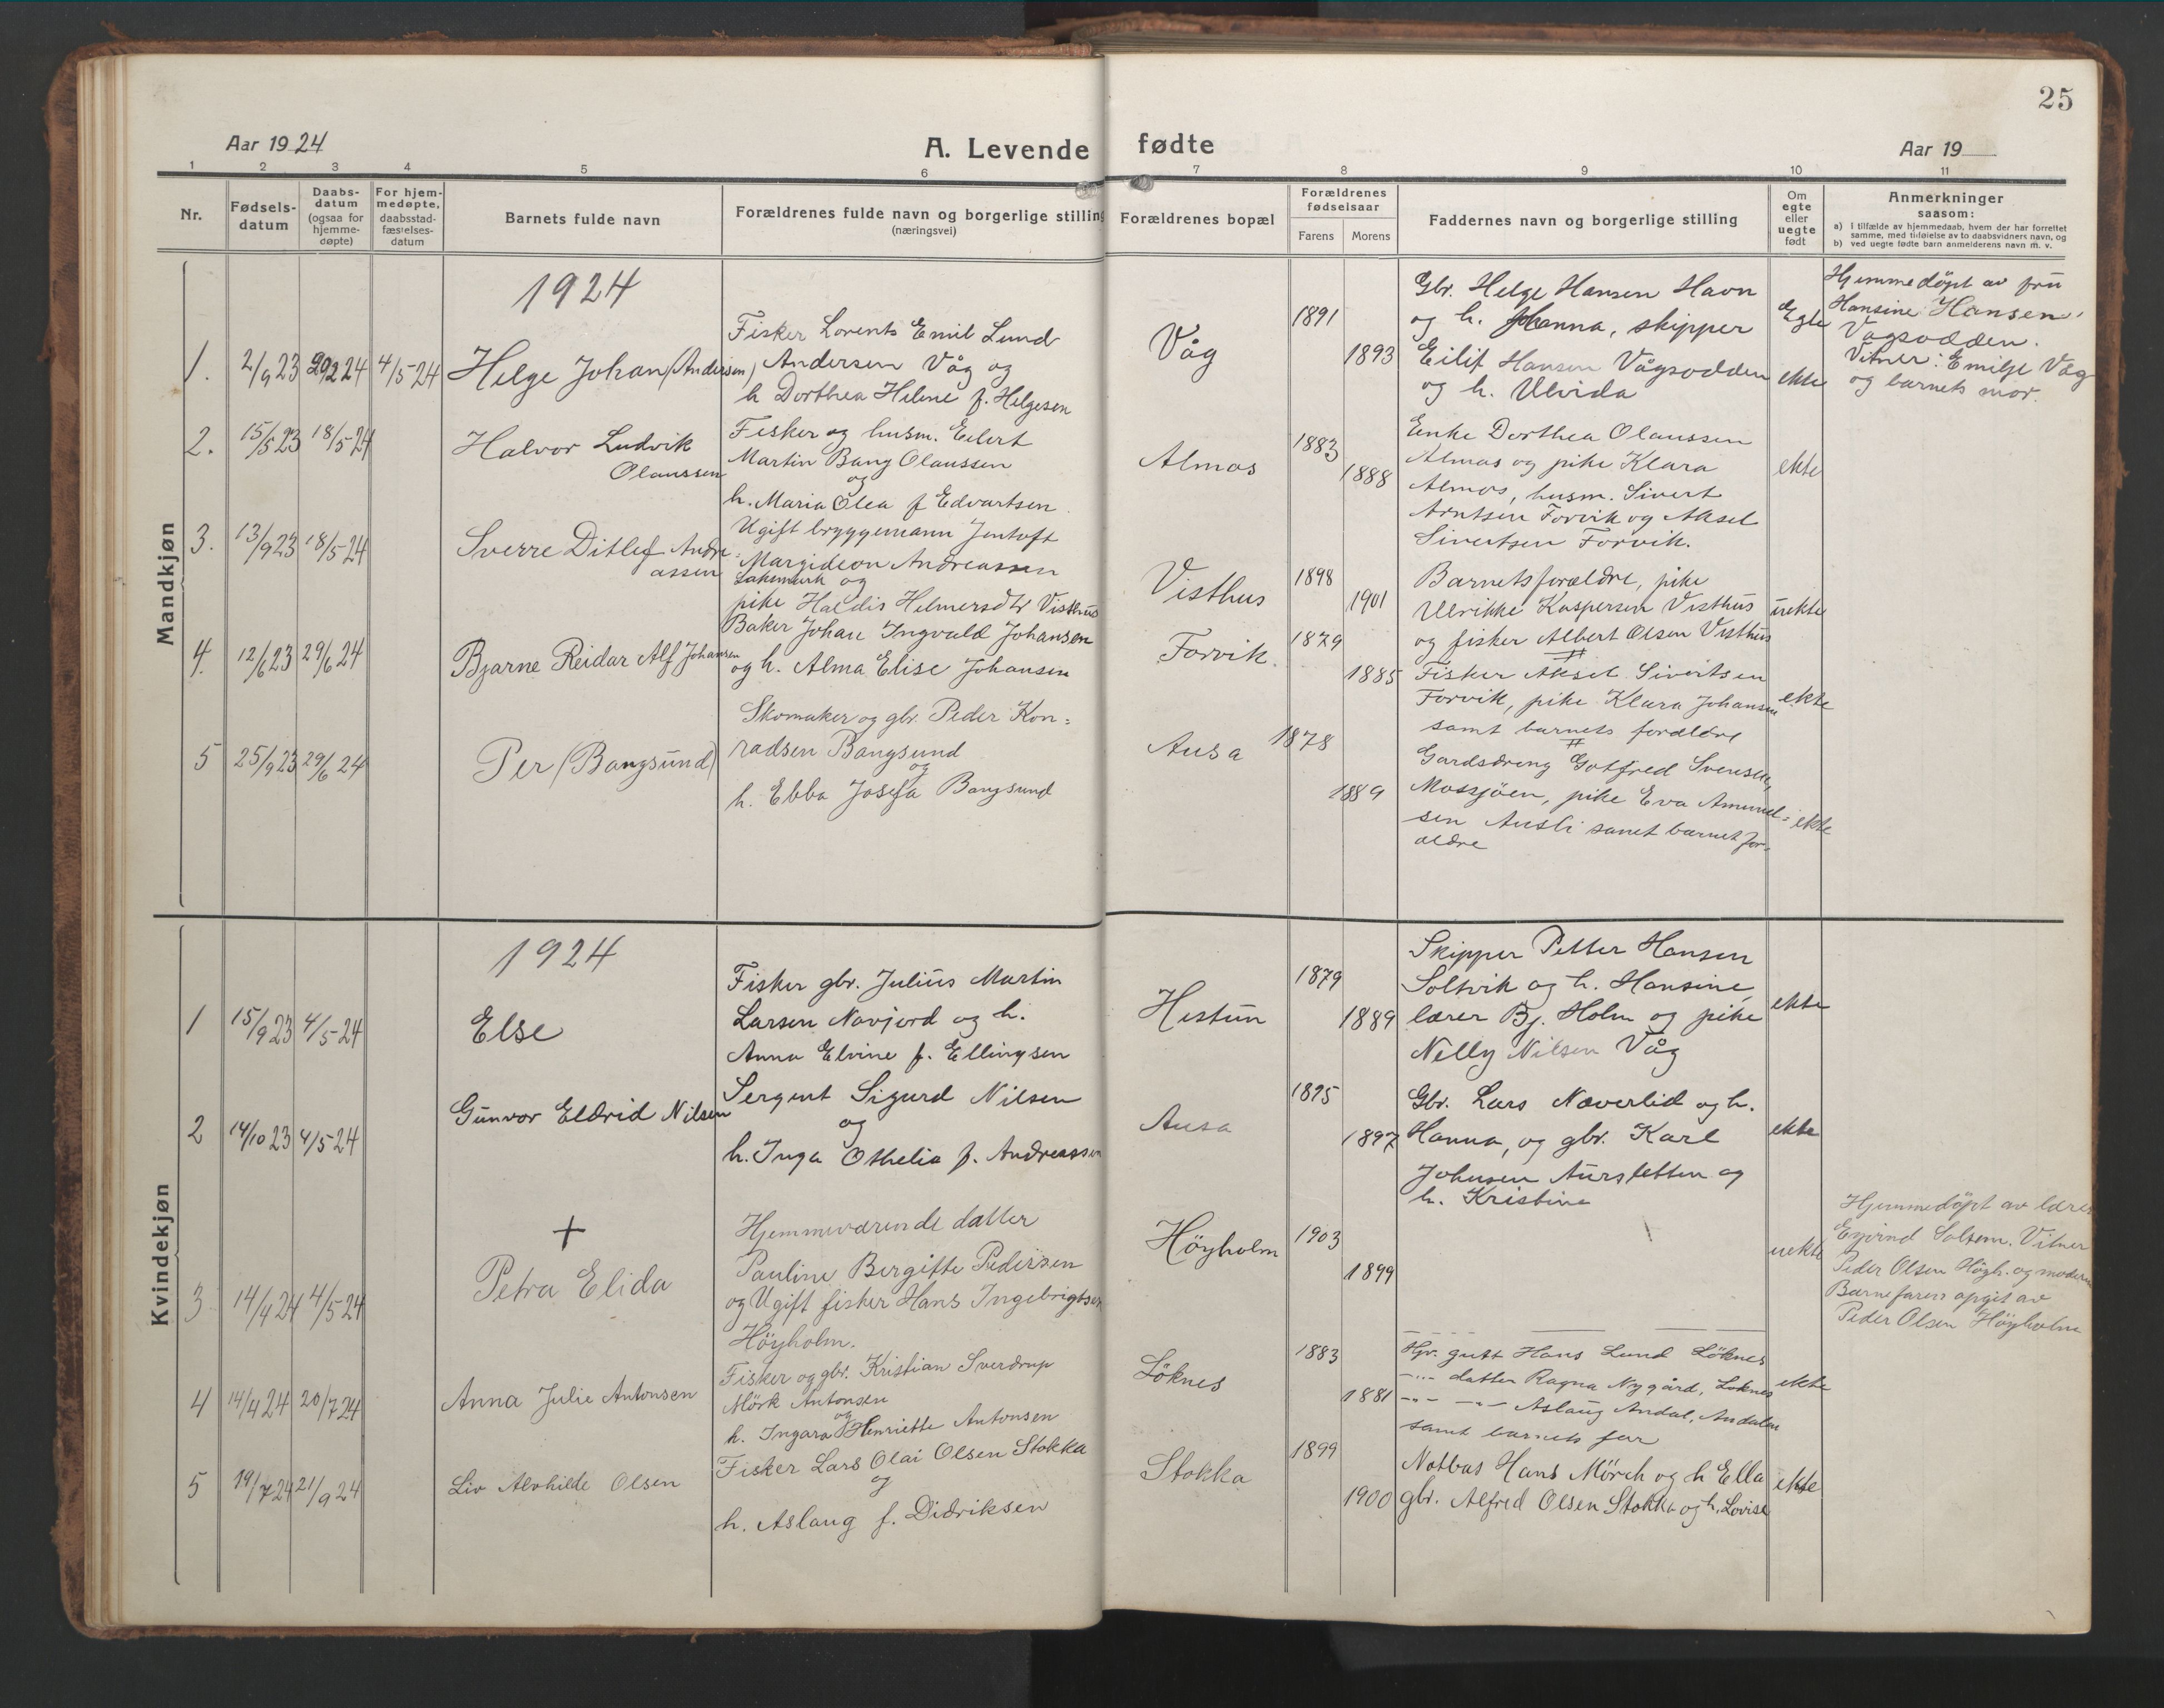 25
Aar 1924
A. Levende fødte
Aar 19
1 2 3 4 5 6 7 8 9 10 11
Nr.
Fødsels-
datum
Daabs-
datum
(ogsaa for
hjemme-
døpte)
For hjem-
medøpte,
daabsstad-
fæstelses-
datum
Barnets fulde navn
Forældrenes fulde navn og borgerlige stilling
(næringsvei)
Forældrenes bopæl
Forældrenes
fødselsaar
Farens Morens
Faddernes navn og borgerlige stilling
Om
egte
eller
uegte
født
Anmerkninger
saasom:
a) i tilfælde av hjemmedaab, hvem der har forrettet
samme, med tilføielse av to daabsvidners navn, og
b) ved uegte fødte barn anmelderens navn m. v.
Mandkjøn
1924
1. 2/9 23 29 2 24 4/5-24
Helge Johan (Andersen)
Fisker Lorents Emil Lund
Andersen Våg og
h Dorthea Helene f. Helgesen
Våg
1891
1893
Gbr. Helge Hansen Havn
og h. Johanna, skipper
Eilif Hansen Vågsodden
og h. Ulvida
Egte
ekte
Hjemmedöpt av frü
Hansine Hansen,
Vågsodden.
Vitner: Emilje Våg
og barnets mor.
2. 15/5 23 18/5-24
Halvor Ludvik
Olaussen
Fisker og husm. Eilert
Martin Bang Olaussen
og
h. Maria Olea f Edvartsen
Almos
1883
1888
Enke Dorthea Olaussen
Almos og pike Klara
Almos, husm. Sivert
Arntsen Forvik og Aksel
Sivertsen Forvik.
ekte
3. 13/9 23 18/5-24
Sverre Ditlef Andre=
assen
Ugift bryggemann Jentoft
Margideon Andreassen
og
pike Haldis Helmersdtr Visthus
Visthus
1898
1901
Barnets forældre, pike
Ulrikke Kaspersen Visthüs
og fisker Albert Olsen Visthüs
uekte
4. 12/6 23 29/6 24
Bjarne Reidar Alf Johansen
Baker Johan Ingvald Johansen
og h. Alma Elise Johansen
Forvik.
1879
1885
Fisker Aksel Sivertsen
Forvik, pike Klara Johansen
samt barnets foreldre
ekte
5 25/9 23 29/6 24
Per (Bangsünd)
Skomaker og gbr. Peder Kon=
radsen Bangsund
og
h. Ebba Josefa Bangsund
Ausa
1878
1889
Gardsdreng Gotfred Svensen,
Mosjöen, pike Eva Amund=
sen Ausli samt barnet for-
ældre
ekte
Kvindekjøn
1924
1 15/9 23 4/5-24
Else
Fisker gbr. Julius Martin
Larsen Navjord og h.
Anna Elvine f. Ellingsen
Hestün
1879
1889
Skipper Petter Hansen
Soltvik og h. Hansine,
lærer Bj. Holm og pike
Nelly Nilsen Våg
ekte
2 14/10 23 4/5-24
Günvor Eldrid Nilsen
Sergent Sigurd Nilsen
og
h. Inga Othelia f. Andreassen
Ausa
1895
1897
Gbr. Lars Næverlid og h.
Hanna, og gbr. Karl
Johnsen Aürsletten og
h. Kristine
ekte
3 14/4 24 4/5-24
+
Petra Elida
Hjemmeværende datter
Pauline Bergitte Pedersen
og Ugift fisker Hans Ingebrigtsen
Höyholm.
Höyholm
1903
1899
uekte
Hjemmedöpt av lærer
Eyvind Solsem. Vitner
Peder Olsen Höyh. og moderen
Barnefaren opgit av
Peder Olsen Höyholm
4 14/4 24 20/7 24
Anna Julie Antonsen
Fisker og gbr. Kristian Sverdrup
Mörk Antonsen
og
h. Ingara Henriette Antonsen
Löknes
1883
1881
Hjv. gutt Hans Lund Löknes
-"- datter Ragna Nygård, Loknes
-"- -"- Aslaug Andal, Andalen
samt barnets far
ekte
5 19/7 24 21/9 24
Liv Alvhilde Olsen
Fisker Lars Olai Olsen Stokka
og
h. Aslaug f. Didriksen
Stokka
1899
1900
Notbas Hans Mörch og h Ella
gbr. Alfred Olsen Stokka og h. Lovise
ekte